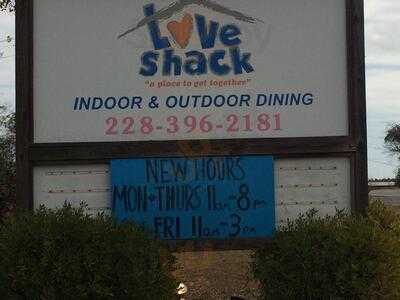 Love
shack
"a place to get together"
INDOOR & OUTDOOR DINING
228-396-2181
NEW HOURS
MON-THURS 11am-8pm
FRI 11am-3pm